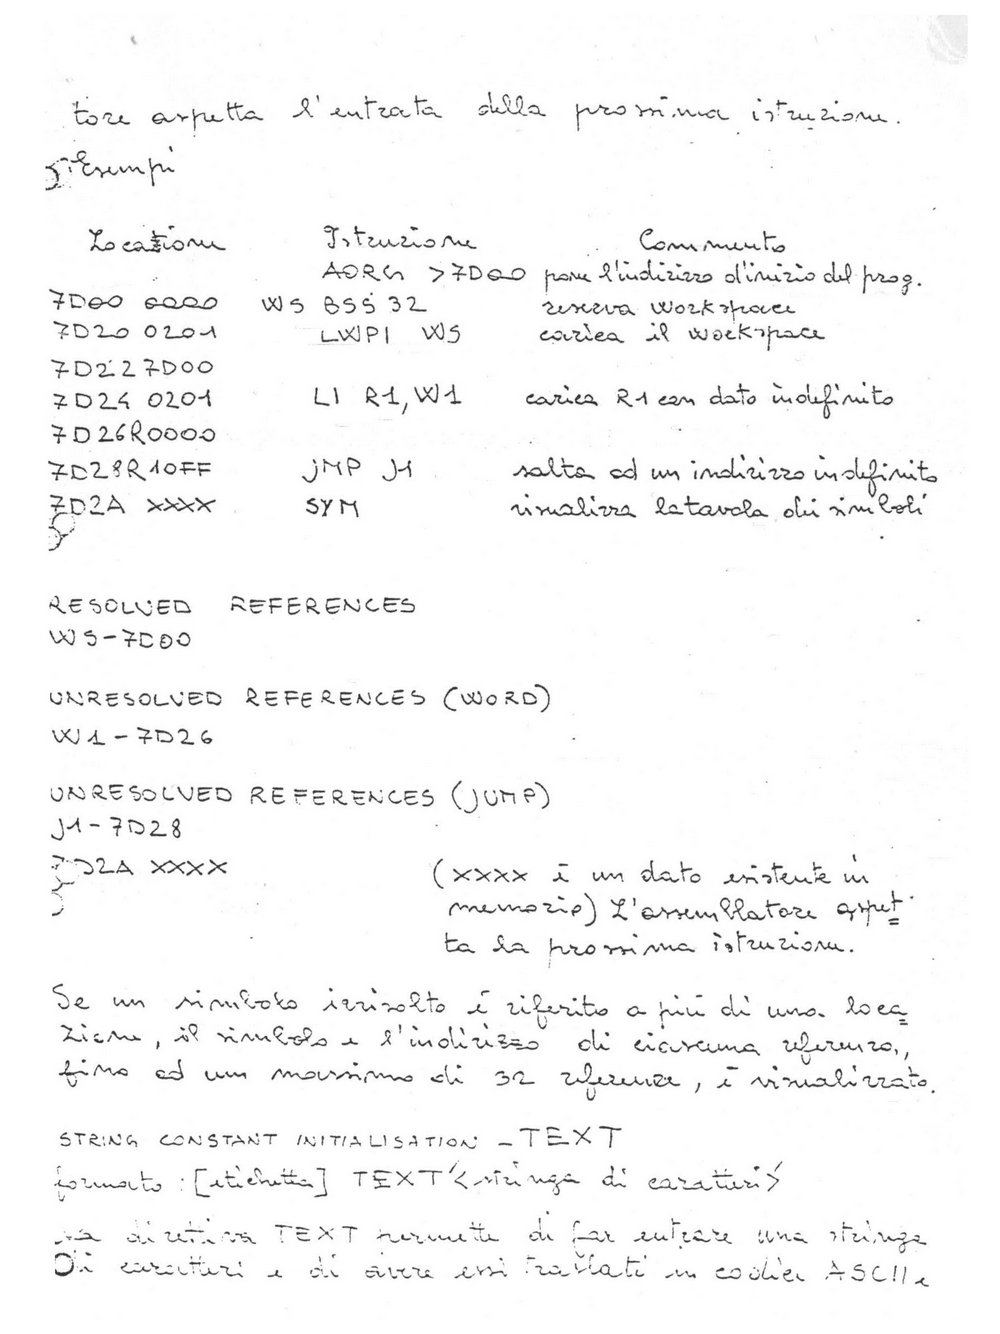 tore aspetta l'entrata della prossima istruzione.
Esempi
Locazione Istruzione Commento
AORG >7D00 pone l'indirizzo d'inizio del prog.
7D00 0000 WS BSS 32 reserva workspace
7D20 0201 LWPI WS carica il workspace
7D22 7D00
7D24 0201 LI R1,W1 carica R1 con dato indefinito
7D26R0000
7D28R10FF JMP J1 salta ad un indirizzo indefinito
7D2A XXXX SYM visualizza la tavola dei simboli
RESOLVED REFERENCES
WS-7D00
UNRESOLVED REFERENCES (WORD)
W1-7D26
UNRESOLVED REFERENCES (JUMP)
J1-7D28
7D2A XXXX (XXXX è un dato esistente in
memoria) L'assemblatore aspet=
ta la prossima istruzione.
Se un simbolo irrisolto è riferito a più di una loca=
zione, il simbolo e l'indirizzo di ciascuna referenza,
fino ad un massimo di 32 referenze, è visualizzato.
STRING CONSTANT INITIALISATION - TEXT
formato: [etichetta] TEXT '<stringa di caratteri>
La direttiva TEXT permette di far entrare una stringa
Di caratteri e di avere essi traslati in codici ASCII e